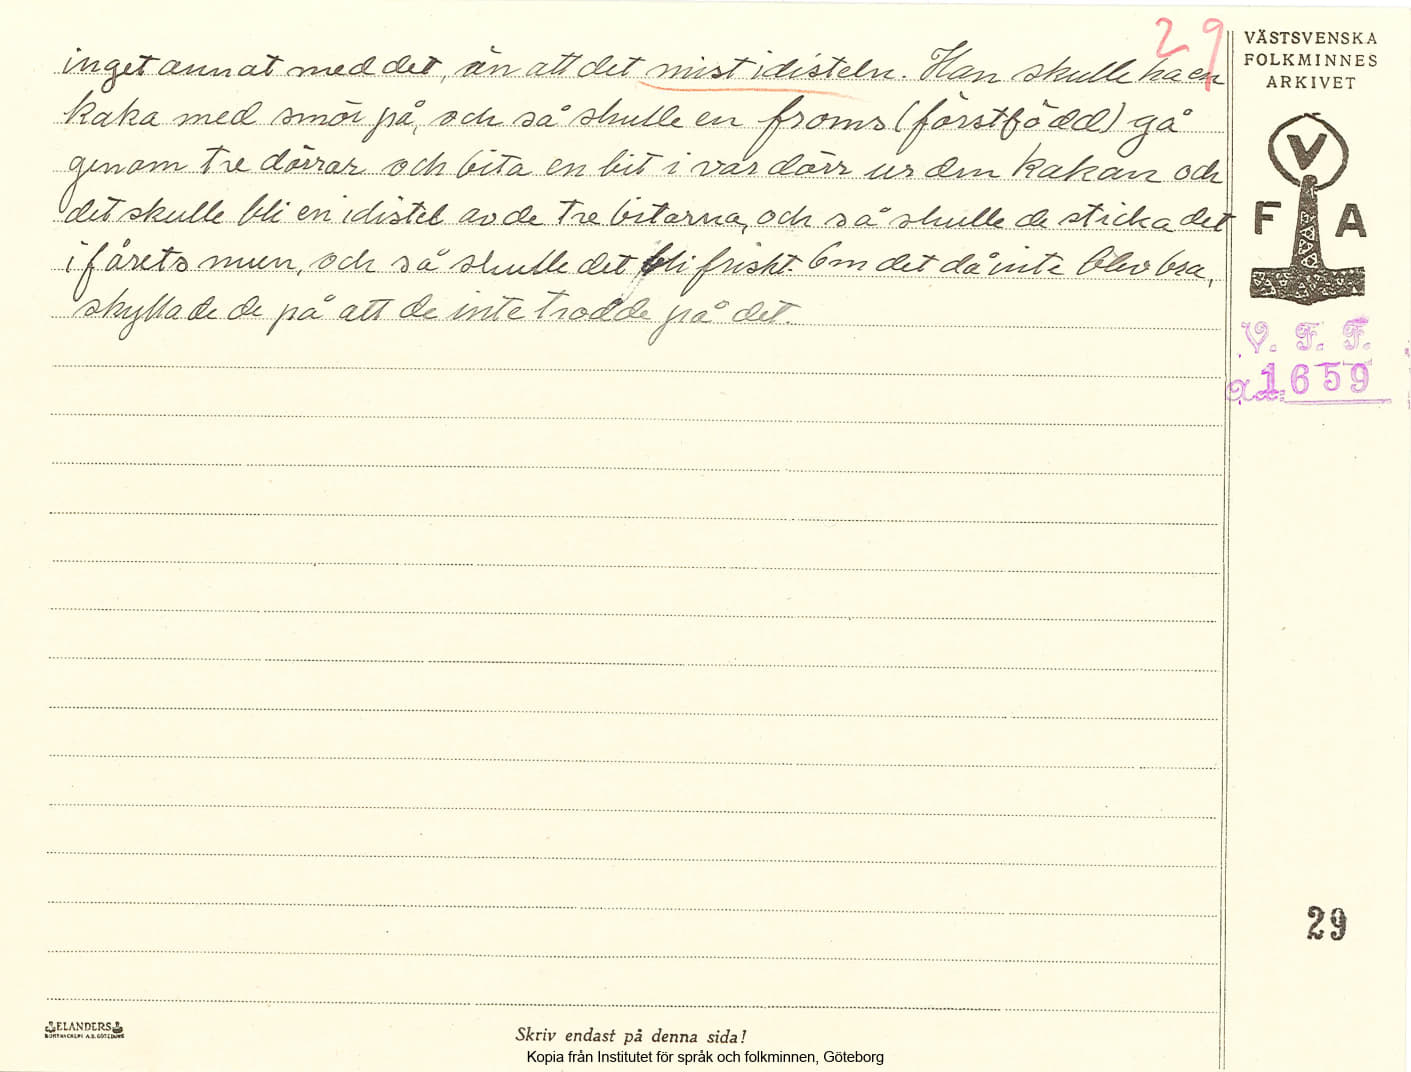 29
VÄSTSVENSKA
FOLKMINNES
ARKIVET
inget annat med det, än att det mist idisteln. Han skulle ha en
kaka med smör på, och så skulle en froms (förstfödd) gå
genom tre dörrar och bita en bit i var dörr ur den kakan och
det skulle bli en idistel av de tre bitarna, och så skulle de sticka det
i fårets mun, och så skulle det bli friskt. Om det då inte blev bra,
skyllade de på att de inte trodde på det.
V
F A
V. F. F.
1659
29
ELANDERS
BOKTRYCKERI A.B. GÖTEBORG
Skriv endast på denna sida!
Kopia från Institutet för språk och folkminnen, Göteborg